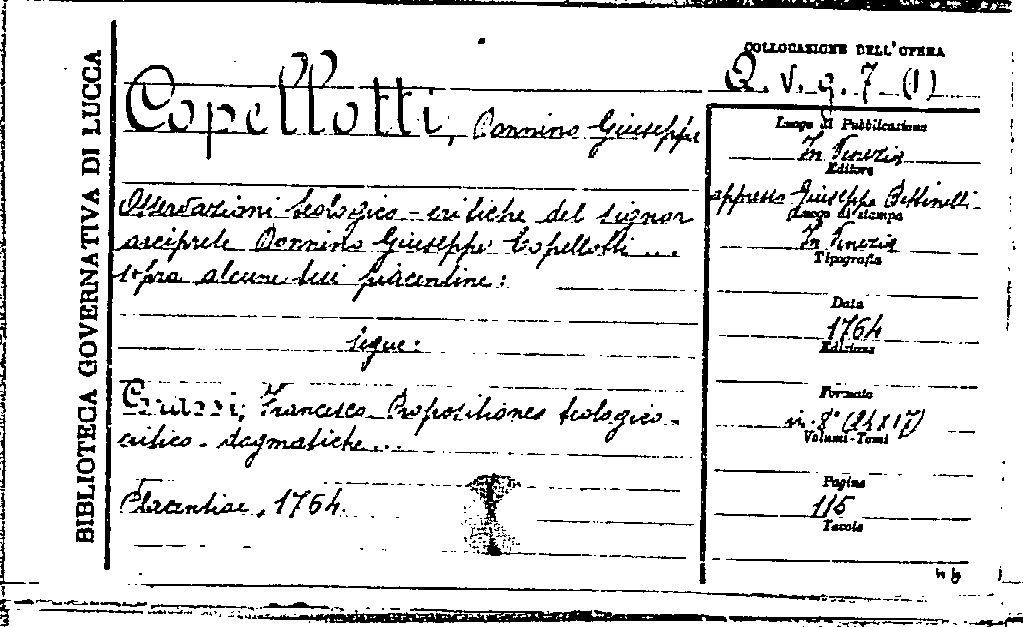 BIBLIOTECA GOVERNATIVA DI LUCCA
Copellotti, Donnino Giuseppe
Osservazioni teologico-critiche del signor
arciprete Donnino Giuseppe Copellotti ...
sopra alcune tesi piacentine:
segue:
Francesco Propositiones teologico-
critico-dogmatiche...
Placentiae, 1764.
COLLOCAZIONE DELL'OPERA
Q. V. g. 7 (1)
Luogo di Pubblicazione
In Venezia
Editore
appresso Giuseppe Bettinelli
Luogo di stampa
In Venezia
Tipografia
Data
1764
Edizione
Formato
in 8° (24x17)
Volumi-Tomi
Pagine
115
Tavole